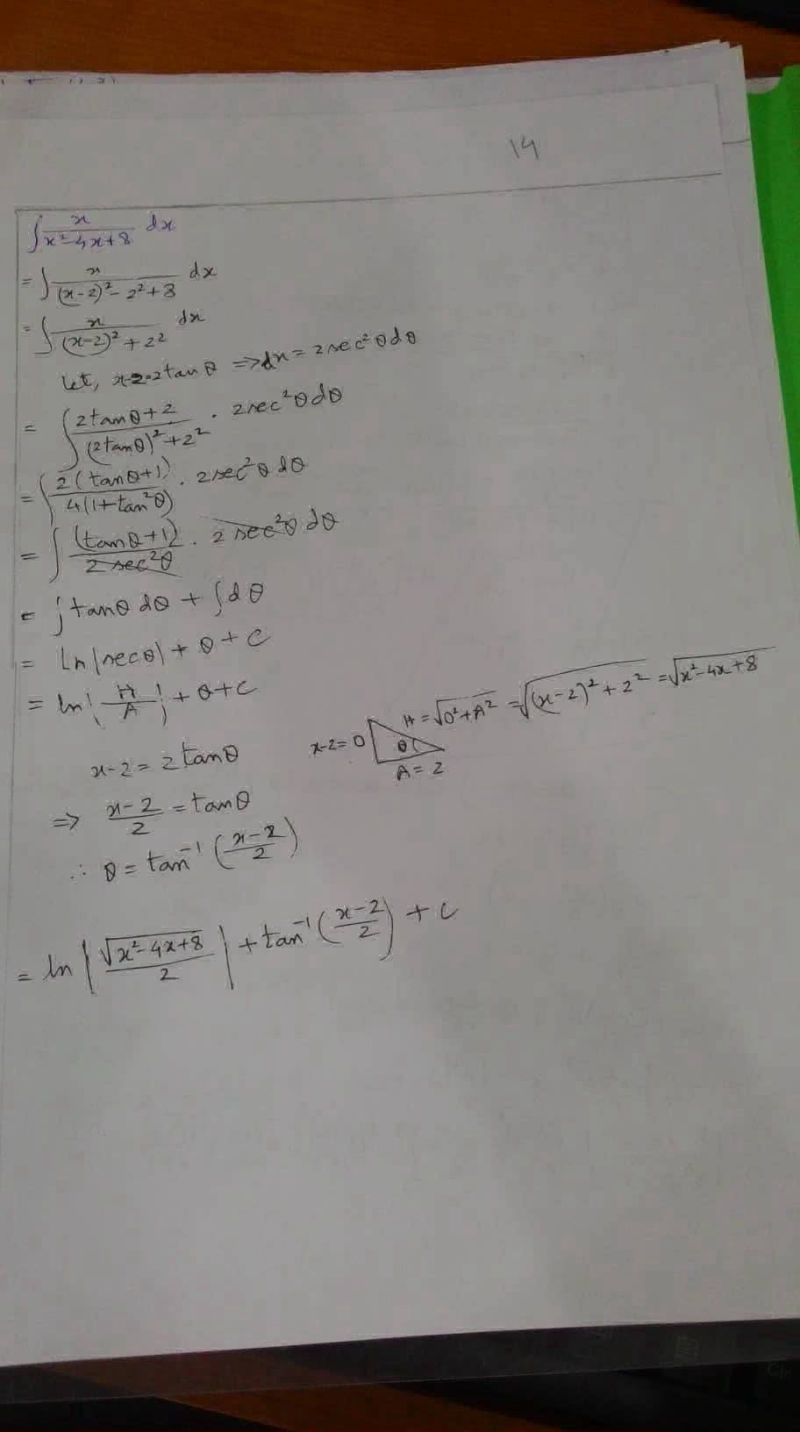 14
∫ x/(x²-4x+8) dx
= ∫ x/((x-2)² - 2² + 8) dx
= ∫ x/((x-2)² + 2²) dx
let, x-2=2tanθ ⇒ dx = 2sec²θdθ
= ∫ (2tanθ+2)/((2tanθ)²+2²) · 2sec²θdθ
= ∫ 2(tanθ+1)/(4(1+tan²θ)) · 2sec²θdθ
= ∫ (tanθ+1)/(2sec²θ) · 2sec²θdθ
= ∫tanθdθ + ∫dθ
= ln|secθ| + θ + c
= ln|H/A| + θ+c
x-2 = 2tanθ
x-2=O θ A=2 H=√(O²+A²) = √((x-2)²+2²) = √(x²-4x+8)
⇒ (x-2)/2 = tanθ
∴ θ = tan⁻¹((x-2)/2)
= ln|√(x²-4x+8)/2| + tan⁻¹((x-2)/2) + c